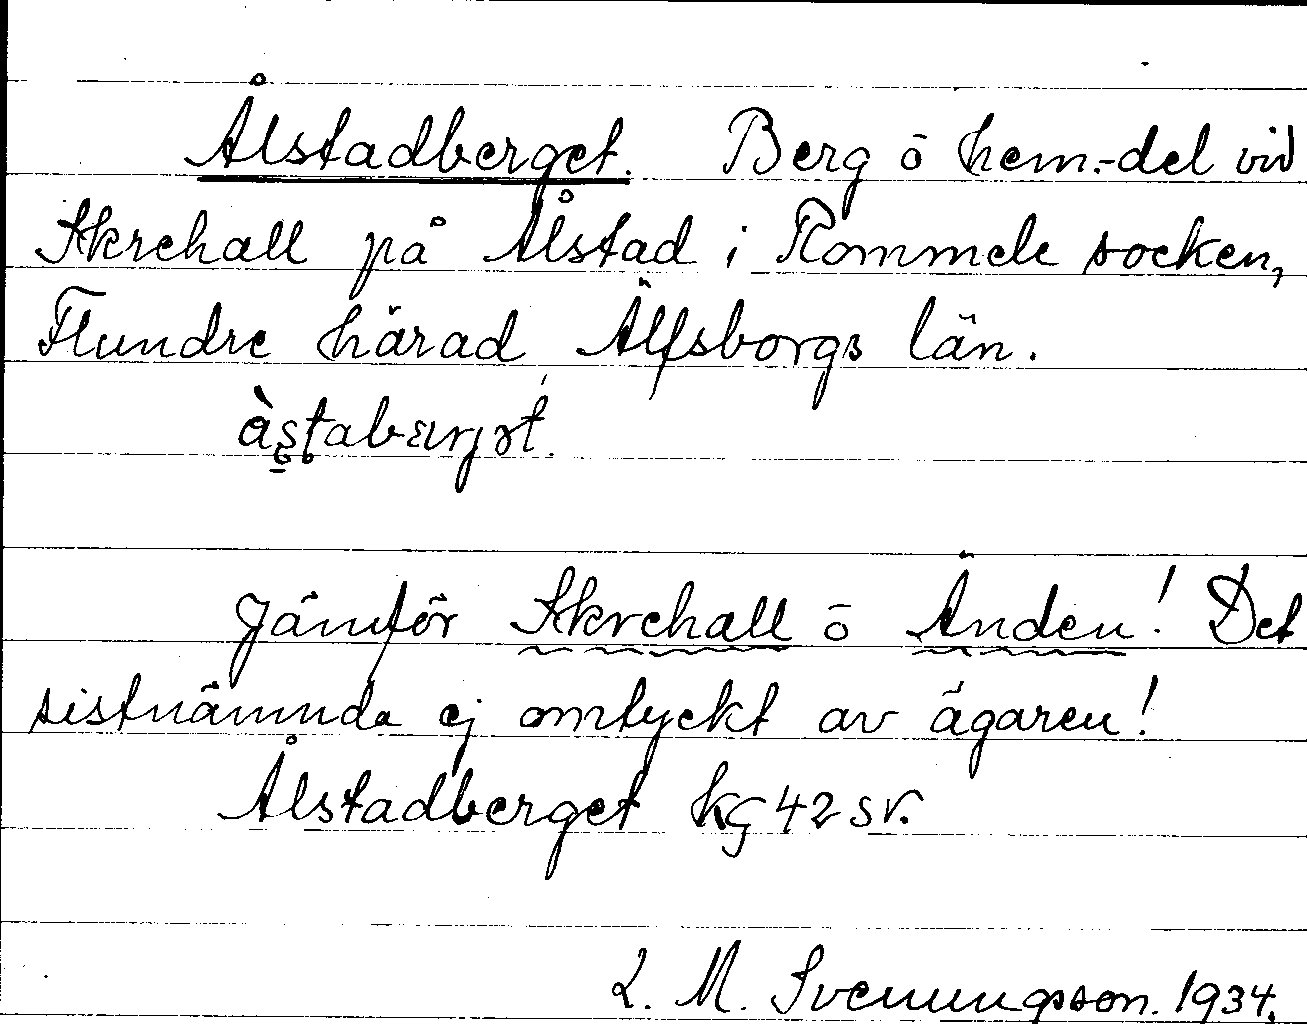 Ålstadberget. Berg ō hem.-del vid
Skrehall på Ålstad i Rommele socken,
Flundre härad Älfsborgs län.
Jämför Skrehall ō Änden! Det
sistnämnda ej omtyckt av ägaren!
Ålstadberget kg 42 sv.
L. M. Svenungsson. 1934.